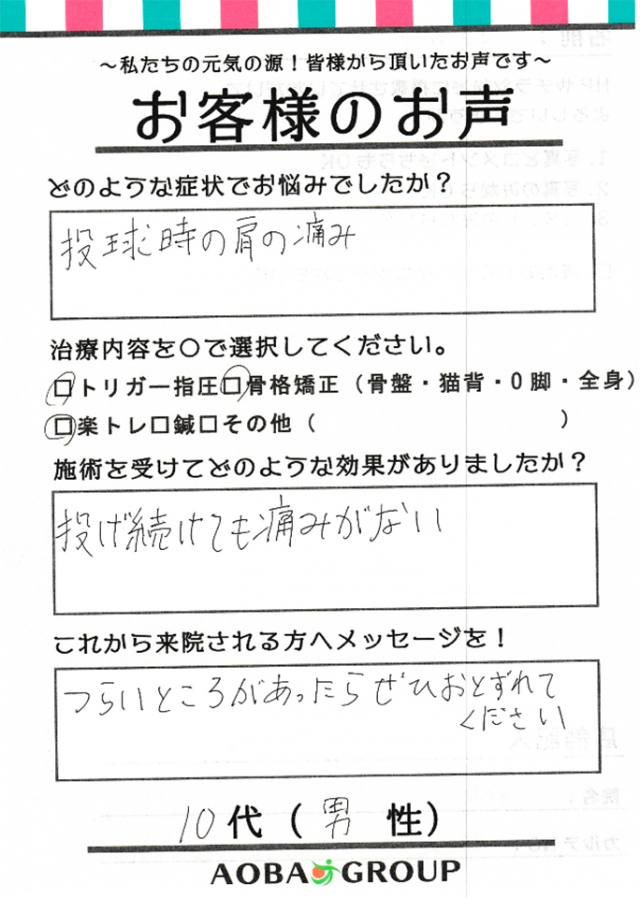 ～私たちの元気の源！皆様から頂いたお声です～
お客様のお声
どのような症状でお悩みでしたか？
投球時の肩の痛み
治療内容を〇で選択してください。
□トリガー指圧□骨格矯正（骨盤・猫背・O脚・全身）
□楽トレ□鍼□その他（　　　　　　　　　）
施術を受けてどのような効果がありましたか？
投げ続けても痛みがない
これから来院される方へメッセージを！
つらいところがあったらぜひおとずれて
ください
10代（男 性）
AOBA GROUP